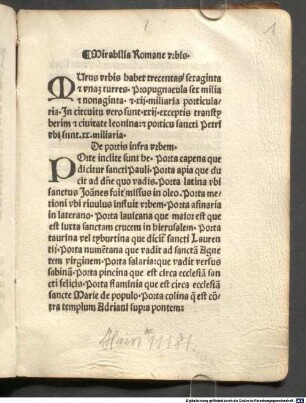 1
¶Mirabilia Romane vrbis·
MUrus vrbis habet trecentas sexaginta
⁊ vnaȝ turres· Propugnacula sex milia
⁊ nonaginta· ⁊·xij·miliaria porticula-
ria·In circuitu vero sunt·xxij·exceptis transty
berim ⁊ ciuitate leonina:⁊ porticu sancti Petri
vbi sunt·xx·miliaria·
De portis infra vrbem·
POrte inclite sunt he· Porta capena que
dicitur sancti Pauli· Porta apia que du
cit ad dn̄e quo vadis· Porta latina vbi
sanctus Joānes fuit missus in oleo· Porta me
tioni vbi riuulus influit vrbem· Porta asinaria
in laterano· Porta lauicana que maior est que
est iuxta sanctam crucem in hierusalem· Porta
taurina vel tyburtina que dicit̄ sancti Lauren
tij· Porta numētana que vadit ad sanctā Agne
tem virginem· Porta salaria: que vadit versus
sabinā· Porta pincina que est circa ecclesiā san
cti felicis· Porta flaminia que est circa ecclesiā
sancte Marie de populo· Porta colina q̄ est cō
tra templum Adriani supra pontem:
11181.